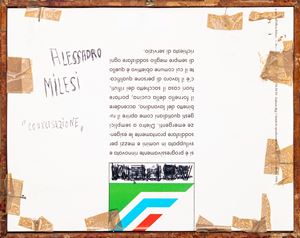 ALESSANDRO
MILESI
"CONVERSAZIONE"
si è progressivamente rinnovata e
sviluppata in uomini e mezzi per
soddisfare prontamente le esigen-
ze emergenti. Dietro a semplici
gesti quotidiani come aprire il ru-
binetto del lavandino, accendere
il fornello della cucina, portare
fuori casa il sacchetto dei rifiuti,
c'è il lavoro di persone qualifica-
te il cui comune obiettivo è quello
di saper meglio soddisfare ogni
richiesta di servizio.